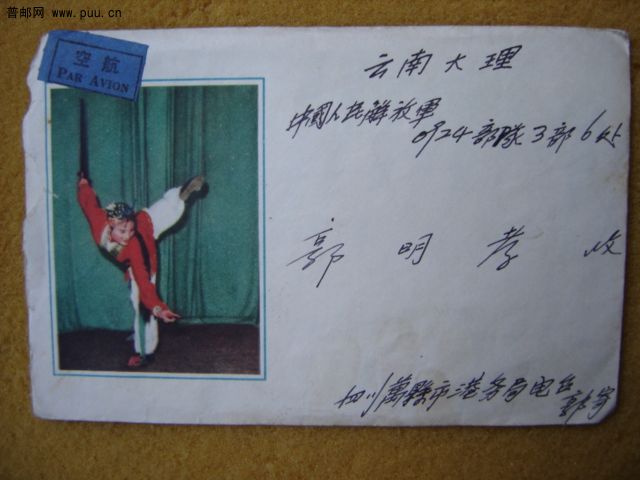 普邮网 www.puu.cn
空航
PAR AVION
云南大理
中國人民解放軍
0924部隊3部6处
郭明孝收
四川萬縣市港务局电台
郭寄